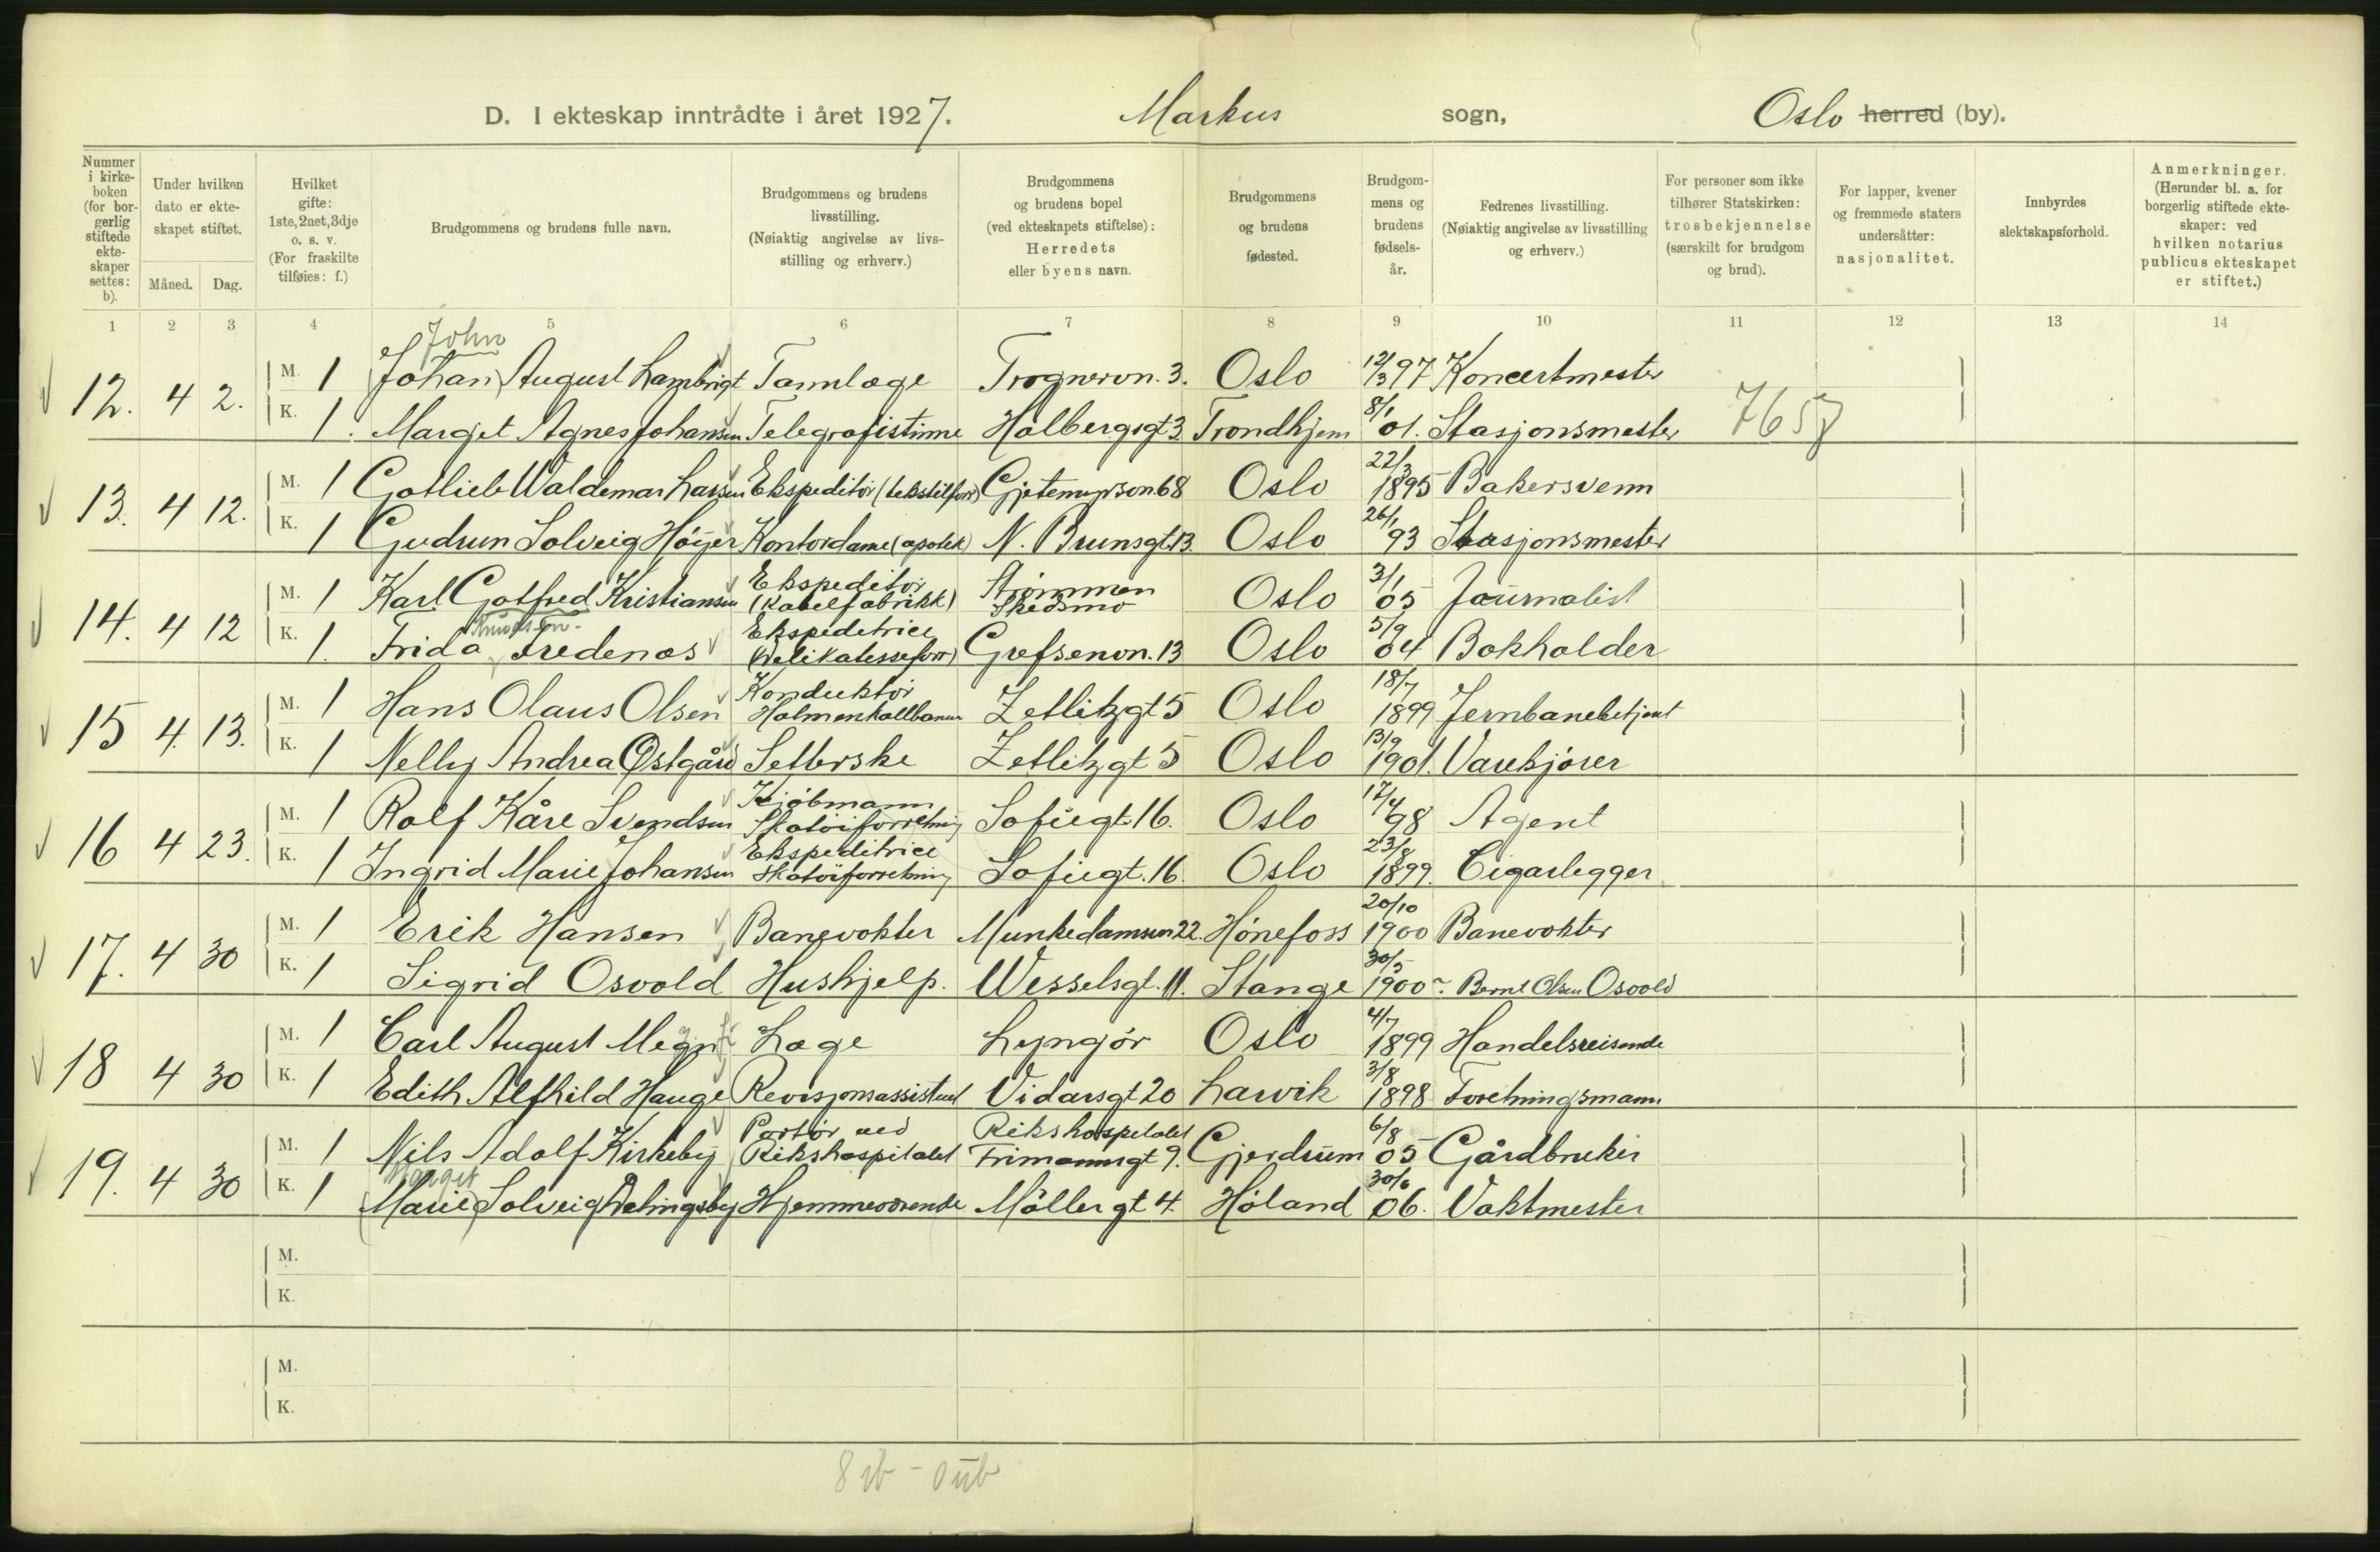 D. I ekteskap inntrådte i året 1927. Markus sogn, Oslo herred (by).
Nummer i kirkeboken (for borgerlig stiftede ekteskaper settes: b).
Under hvilken dato er ekteskapet stiftet.
Måned. Dag.
Hvilket gifte: 1ste, 2net, 3dje o. s. v. (For fraskilte tilføies: f.)
Brudgommens og brudens fulle navn.
Brudgommens og brudens livsstilling. (Nøiaktig angivelse av livsstilling og erhverv.)
Brudgommens og brudens bopel (ved ekteskapets stiftelse): Herredets eller byens navn.
Brudgommens og brudens fødested.
Brudgommens og brudens fødselsår.
Fedrenes livsstilling. (Nøiaktig angivelse av livsstilling og erhverv.)
For personer som ikke tilhører Statskirken: trosbekjennelse (særskilt for brudgom og brud).
For lapper, kvener og fremmede staters undersåtter: nasjonalitet.
Innbyrdes slektskapsforhold.
Anmerkninger. (Herunder bl. a. for borgerlig stiftede ekteskaper: ved hvilken notarius publicus ekteskapet er stiftet.)
1 2 3 4 5 6 7 8 9 10 11 12 13 14
John
12. 4 2. M. 1 (Johan) August Lambrigt Tannlæge Trognervn. 3. Oslo 12/3 97 Koncertmester
K. 1. Marget Agnes Johansen Telegrafistinne Holbergsgt 3 Trondhjem 8/1 01. Stasjonsmester 7657
13. 4 12. M. 1 Gotlieb Waldemar Larsen Ekspeditør (tekstilforr) Gjetemyrsvn 68 Oslo 22/3 1895 Bakersvenn
K. 1 Gudrun Solveig Höyer Kontordame (apotek) N. Brunsgt. 13. Oslo 26/1 93 Stasjonsmester
14. 4 12 M. 1 Karl Gotfred Kristiansen Ekspeditør (Kabelfabrikk) Strømmen Skedsmo Oslo 3/1 05 Journalist
Knudsen
K. 1. Frida Fredenæs Ekspeditrice (Delikatesseforr) Grefsenvn. 13 Oslo 5/9 04 Bokholder
15 4. 13. M. 1 Hans Olaus Olsen Konduktør Holmenkollbanen Zetlitzgt 5 Oslo 18/7 1899 Jernbanebetjent
K. 1 Nelly Andrea Østgård Setterske Zetlitzgt 5 Oslo 13/9 1901. Varekjører
16 4 23. M. 1 Rolf Kåre Svendsen Kjøbmann Skotøiforretning Sofiegt. 16. Oslo 17/4 98 Agent
K. 1 Ingrid Marie Johansen Ekspeditrice Skotøiforretning Sofiegt. 16. Oslo 23/8 1899. Cigarlegger
17. 4 30 M. 1 Erik Hansen Banevokter Munkedamsvn 22. Hønefoss 20/10 1900 Banevokter
K. 1 Sigrid Osvold Hushjelp. Wesselsgt. 11. Stange 30/5 1900 Bernt Olsen Osvold
18 4 30 M. 1 Carl August Megn Læge Lyngør Oslo 4/7 1899 Handelsreisende
K. 1 Edith Alfhild Hauge Revisjonsassistent Vidarsgt 20 Larvik 3/8 1898 Forretningsmann
19. 4 30 M. 1 Nils Adolf Kirkeby Portør ved Rikshospitalet Rikshospitalet Frimannsgt 9. Gjerdrum 6/8 05 Gårdbruker
Marget
K. 1 (Marie) Solveig Delingsby Hjemmeværende Möllergt 4. Høland 30/6 06. Vaktmester
M.
K.
M.
K.